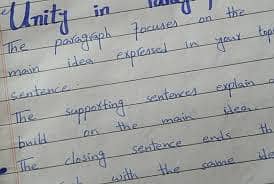 Unity in
The paragraph focuses on the
main idea expressed in your
sentence.
The supporting sentences explain
build on the main idea.
The closing sentence ends
with the same